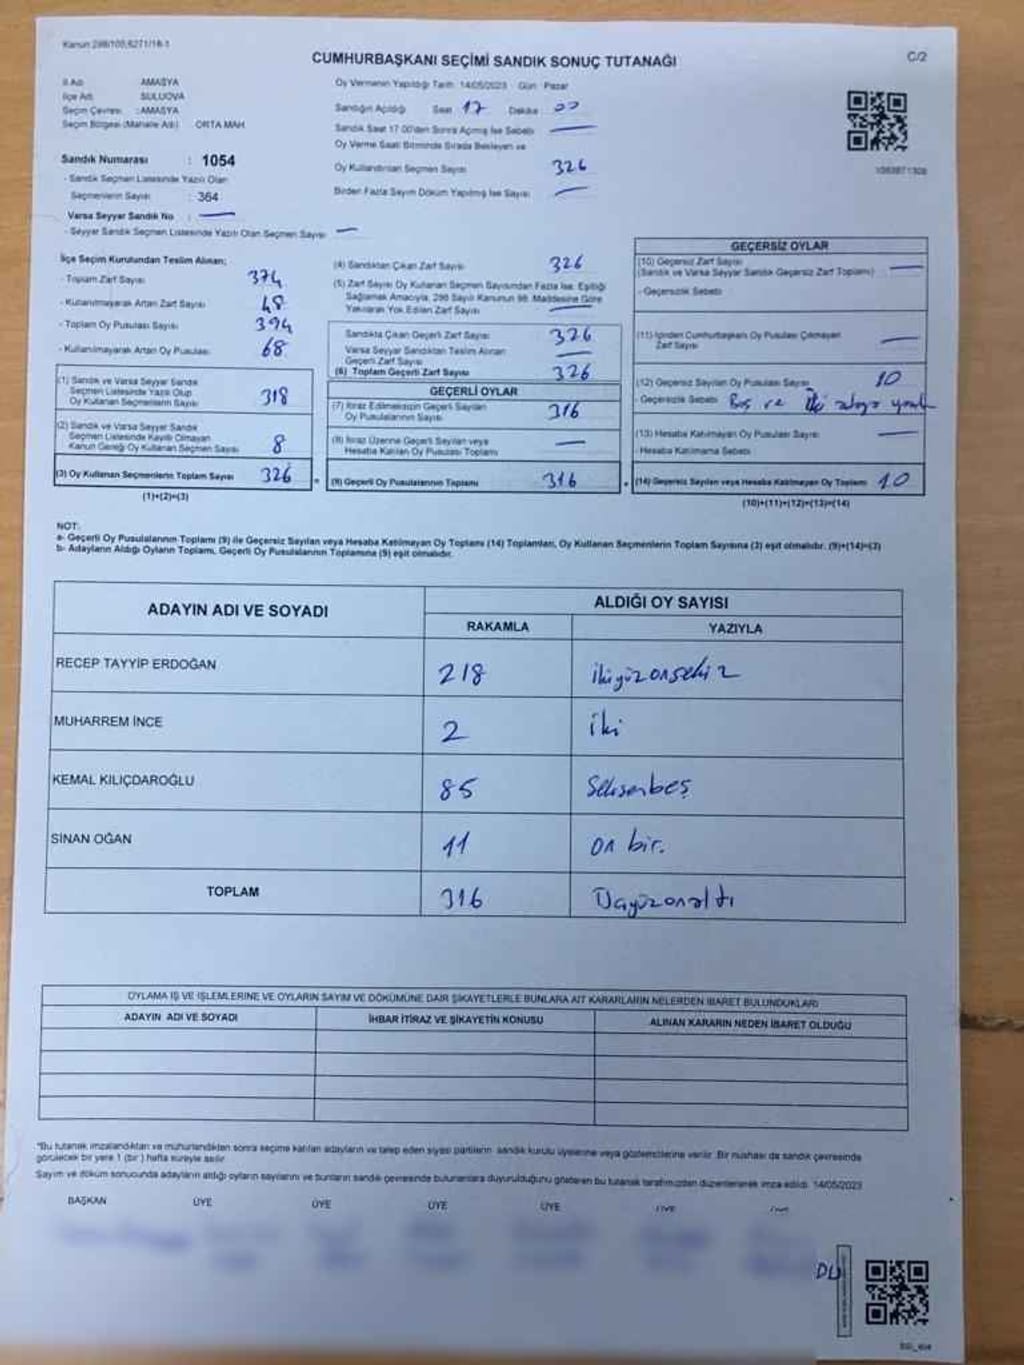 Kanun 298/100,6271/16-1
CUMHURBAŞKANI SEÇİMİ SANDIK SONUÇ TUTANAĞI
C/2
İl Adı : AMASYA
İlçe Adı : SULUOVA
Seçim Çevresi : AMASYA
Seçim Bölgesi (Mahalle Adı) ORTA MAH
Sandık Numarası : 1054
- Sandık Seçmen Listesinde Yazılı Olan
Seçmenlerin Sayısı : 364
Varsa Seyyar Sandık No :
- Seyyar Sandık Seçmen Listesinde Yazılı Olan Seçmen Sayısı
Oy Vermenin Yapıldığı Tarih 14/05/2023 Gün Pazar
Sandığın Açıldığı Saat 17 Dakika 00
Sandık Saat 17.00'den Sonra Açılmış İse Sebebi
Oy Verme Saati Bitiminde Sırada Bekleyen ve
Oy Kullandırılan Seçmen Sayısı 326
Birden Fazla Sayım Döküm Yapılmış İse Sayısı
İlçe Seçim Kurulundan Teslim Alınan;
- Toplam Zarf Sayısı 374
- Kullanılmayarak Artan Zarf Sayısı 48
- Toplam Oy Pusulası Sayısı 394
- Kullanılmayarak Artan Oy Pusulası 68
(1) Sandık ve Varsa Seyyar Sandık
Seçmen Listesinde Yazılı Olup
Oy Kullanan Seçmenlerin Sayısı 318
(2) Sandık ve Varsa Seyyar Sandık
Seçmen Listesinde Kayıtlı Olmayan
Kanun Gereği Oy Kullanan Seçmen Sayısı 8
(3) Oy Kullanan Seçmenlerin Toplam Sayısı 326
(1)+(2)=(3)
(4) Sandıktan Çıkan Zarf Sayısı 326
(5) Zarf Sayısı Oy Kullanan Seçmen Sayısından Fazla İse, Eşitliği
Sağlamak Amacıyla, 298 Sayılı Kanunun 98. Maddesine Göre
Yakılarak Yok Edilen Zarf Sayısı
Sandıkta Çıkan Geçerli Zarf Sayısı 326
Varsa Seyyar Sandıktan Teslim Alınan
Geçerli Zarf Sayısı
(6) Toplam Geçerli Zarf Sayısı 326
GEÇERLİ OYLAR
(7) İtiraz Edilmeksizin Geçerli Sayılan
Oy Pusulalarının Sayısı 316
(8) İtiraz Üzerine Geçerli Sayılan veya
Hesaba Katılan Oy Pusulası Toplamı
(9) Geçerli Oy Pusulalarının Toplamı 316
GEÇERSİZ OYLAR
(10) Geçersiz Zarf Sayısı
(Sandık ve Varsa Seyyar Sandık Geçersiz Zarf Toplamı)
- Geçersizlik Sebebi
(11) İçinden Cumhurbaşkanı Oy Pusulası Çıkmayan
Zarf Sayısı
(12) Geçersiz Sayılan Oy Pusulası Sayısı 10
- Geçersizlik Sebebi Boş ve iki adaya
(13) Hesaba Katılmayan Oy Pusulası Sayısı
- Hesaba Katılmama Sebebi
(14) Geçersiz Sayılan veya Hesaba Katılmayan Oy Toplamı 10
(10)+(11)+(12)+(13)=(14)
NOT:
a- Geçerli Oy Pusulalarının Toplamı (9) ile Geçersiz Sayılan veya Hesaba Katılmayan Oy Toplamı (14) Toplamları, Oy Kullanan Seçmenlerin Toplam Sayısına (3) eşit olmalıdır. (9)+(14)=(3)
b- Adayların Aldığı Oyların Toplamı, Geçerli Oy Pusulalarının Toplamına (9) eşit olmalıdır.
ADAYIN ADI VE SOYADI
ALDIĞI OY SAYISI
RAKAMLA YAZIYLA
RECEP TAYYİP ERDOĞAN 218 ikiyüzonsekiz
MUHARREM İNCE 2 iki
KEMAL KILIÇDAROĞLU 85 Seksenbeş
SİNAN OĞAN 11 on bir.
TOPLAM 316 Üçyüzonaltı
OYLAMA İŞ VE İŞLEMLERİNE VE OYLARIN SAYIM VE DÖKÜMÜNE DAİR ŞİKAYETLERLE BUNLARA AİT KARARLARIN NELERDEN İBARET BULUNDUKLARI
ADAYIN ADI VE SOYADI İHBAR İTİRAZ VE ŞİKAYETİN KONUSU ALINAN KARARIN NEDEN İBARET OLDUĞU
"Bu tutanak imzalandıktan ve mühürlendikten sonra seçime katılan adayların ve talep eden siyasi partilerin sandık kurulu üyelerine veya gözlemcilerine verilir. Bir nüshası da sandık çevresinde
görülecek bir yere 1 (bir) hafta süreyle asılır.
Sayım ve döküm sonucunda adayların aldığı oyların sayılarını ve bunların sandık çevresinde bulunanlara duyurulduğunu gösteren bu tutanak tarafımızdan düzenlenerek imza edildi. 14/05/2023
BAŞKAN ÜYE ÜYE ÜYE ÜYE ÜYE